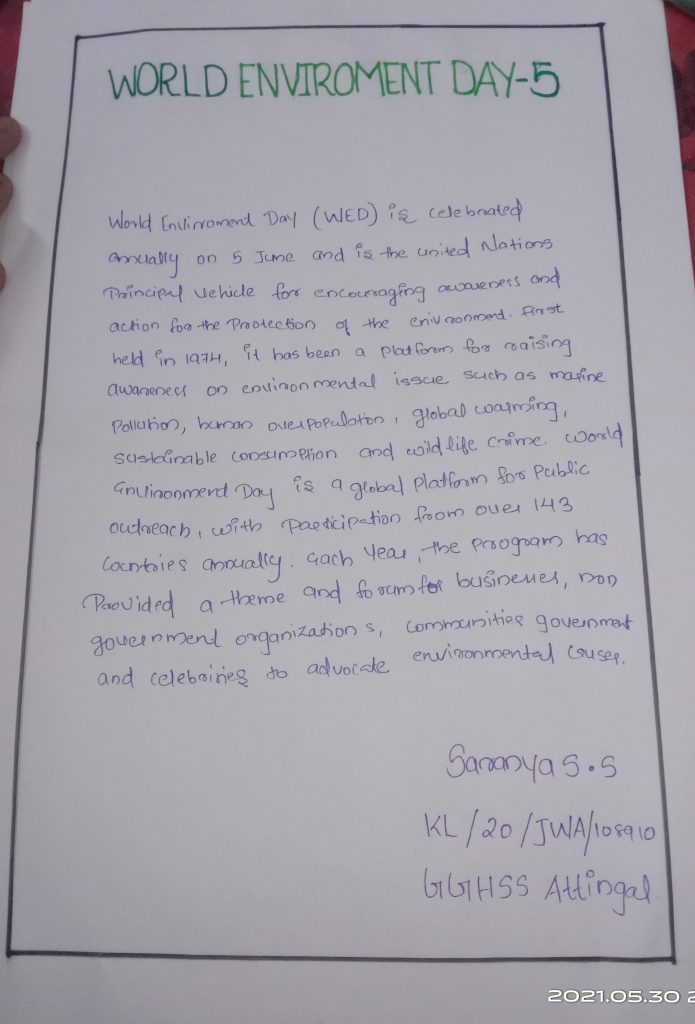 WORLD ENVIROMENT DAY-5
World Envirroment Day (WED) is celebrated
annually on 5 June and is the united Nations
Principal vehicle for encouraging awareness and
action for the Protection of the enivronment. First
held in 1974, it has been a platform for raising
awareness on environmental issue such as marine
pollution, human overpopulation, global warming,
sustainable consumption and wildlife crime. World
Environment Day is a global platform for public
outreach, with participation from over 143
Countries annually. Each Year, the program has
Provided a theme and forum for businesses, non
government organizations, communities government
and celebrities to advocate environmental causes.
Saranya S.S
KL/20/JWA/108910
GGHSS Attingal
2021.05.30 2